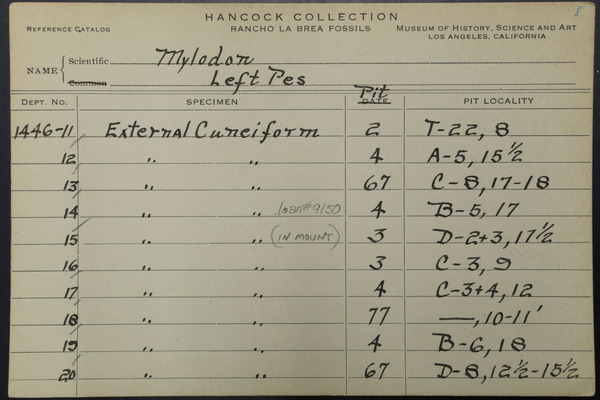 8
HANCOCK COLLECTION
REFERENCE CATALOG RANCHO LA BREA FOSSILS MUSEUM OF HISTORY, SCIENCE AND ART
LOS ANGELES, CALIFORNIA
NAME { Scientific Mylodon
Common Left Pes
DEPT. NO. SPECIMEN Pit DATE PIT LOCALITY
1446-11 External Cuneiform 2 T-22, 8
12 " " 4 A-5, 15½
13 " " 67 C-8, 17-18
14 " " loan #9150 4 B-5, 17
15 " " (IN MOUNT) 3 D-2+3, 17½
16 " " 3 C-3, 9
17 " " 4 C-3+4, 12
18 " " 77 —, 10-11'
19 " " 4 B-6, 18
20 " " 67 D-8, 12½-15½